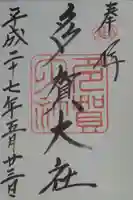 奉拝
多賀大社
平成二十七年五月廿三日